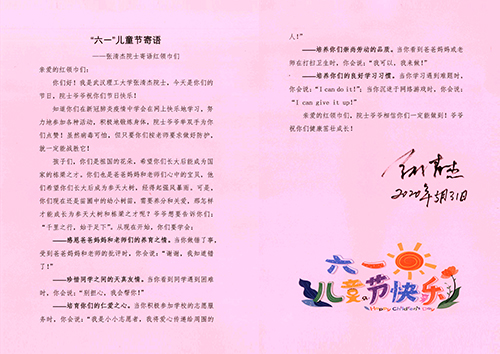 “六一”儿童节寄语
——张清杰院士寄语红领巾们
亲爱的红领巾们：
你们好！我是武汉理工大学张清杰院士。今天是你们的
节日，院士爷爷祝你们节日快乐！
知道你们在新冠肺炎疫情中学会在网上快乐地学习，努
力地参加各种活动，积极地锻炼身体，院士爷爷举双手为你
们点赞！虽然病毒可怕，但只要你们按老师要求做好防护，
就一定能战胜它！
孩子们，你们是祖国的花朵，希望你们长大后能成为国
家的栋梁之才。你们也是爸爸妈妈和老师们心中的宝贝，他
们希望你们长大后成为参天大树，经得起强风暴雨。可是，
你们现在还是苗圃中的幼小树苗，需要养分和关爱，那怎样
才能成长为参天大树和栋梁之才呢？爷爷想要告诉你们：
“千里之行，始于足下”，从现在开始，你们要学会：
——感恩爸爸妈妈和老师们的养育之情。当你做错了事，
受到爸爸妈妈和老师的批评时，你会说：“谢谢，我知道错
了！”
——珍惜同学之间的天真友情。当你看到同学遇到困难
时，你会说：“别担心，我会帮你！”
——培育你们的仁爱之心。当你积极参加学校的志愿服
务时，你会说：“我是小小志愿者，我将爱心传递给周围的
人！”
——培养你们的崇尚劳动的品质。当你看到爸爸妈妈或老
师在打扫卫生时，你会说：“我可以，我来做！”
——培养你们的良好学习习惯。当你学习遇到难题时，
你会说：“I can do it！”；当你沉迷于网络游戏时，你会说：
“I can give it up!”
亲爱的红领巾们，院士爷爷相信你们一定能做到！爷爷
祝你们健康茁壮成长！
张清杰
2020年5月31日
六一
儿童节快乐
Happy Children's Day